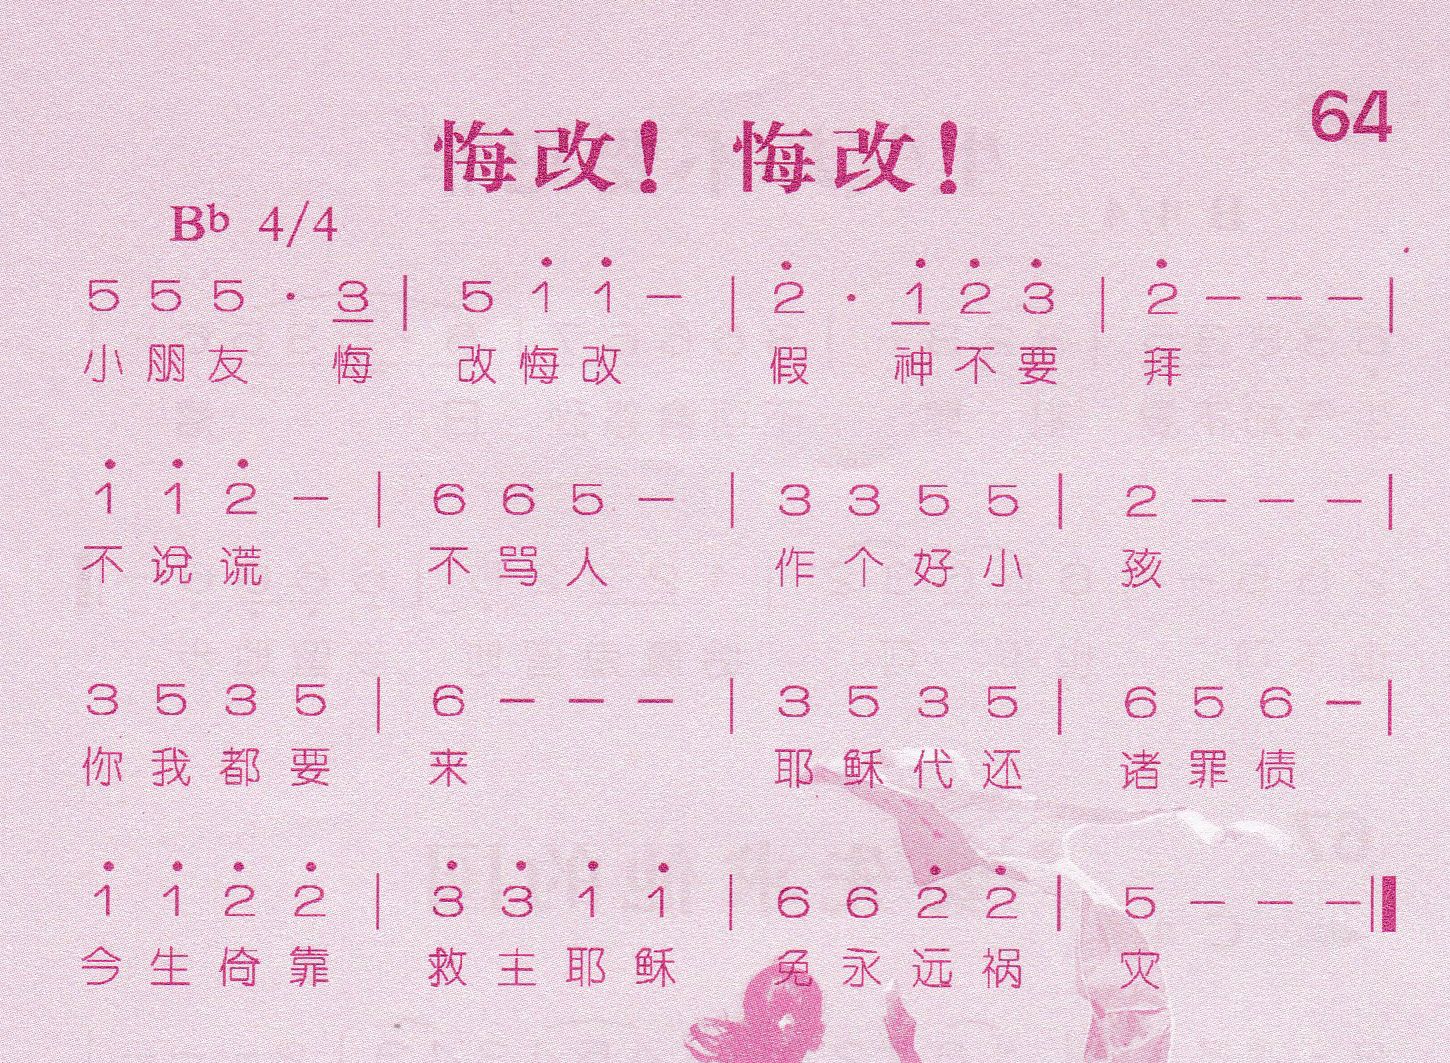 64
悔改！ 悔改！
Bb 4/4
5 5 5 · 3 | 5 1̇ 1̇ — | 2̇ · 1̇ 2̇ 3̇ | 2̇ — — — |
小 朋 友 悔 改 悔 改 假 神 不 要 拜
1̇ 1̇ 2̇ — | 6 6 5 — | 3 3 5 5 | 2 — — — |
不 说 谎 不 骂 人 作 个 好 小 孩
3 5 3 5 | 6 — — — | 3 5 3 5 | 6 5 6 — |
你 我 都 要 来 耶 稣 代 还 诸 罪 债
1̇ 1̇ 2̇ 2̇ | 3̇ 3̇ 1̇ 1̇ | 6 6 2̇ 2̇ | 5 — — — ‖
今 生 倚 靠 救 主 耶 稣 免 永 远 祸 灾